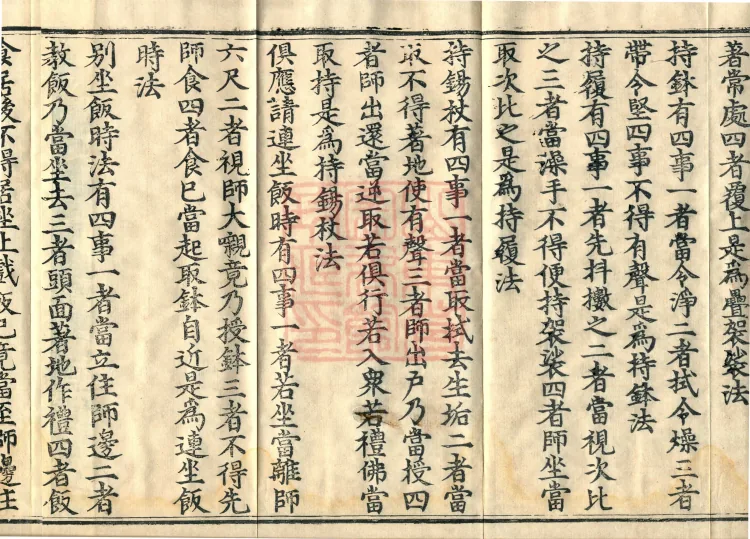 著常處四者覆上是為疊袈裟法
持鉢有四事一者當令淨二者拭令燥三者
帶令堅四事不得有聲是為持鉢法
持履有四事一者先抖擻之二者當視次比
之三者當澡手不得便持袈裟四者師坐當
取次比之是為持履法
持錫杖有四事一者當取拭去生垢二者當
取不得著地使有聲三者師出戶乃當授四
者師出還當逆取若俱行若入衆若禮佛當
取持是為持錫杖法
俱應請連坐飯時有四事一者若坐當離師
六尺二者視師大嚫竟乃授鉢三者不得先
師食四者食已當起取鉢自近是為連坐飯
時法
別坐飯時法有四事一者當立住師邊二者
教飯乃當坐去三者頭面著地作禮四者飯
食居後不得居坐上戲飯已竟當至師邊住